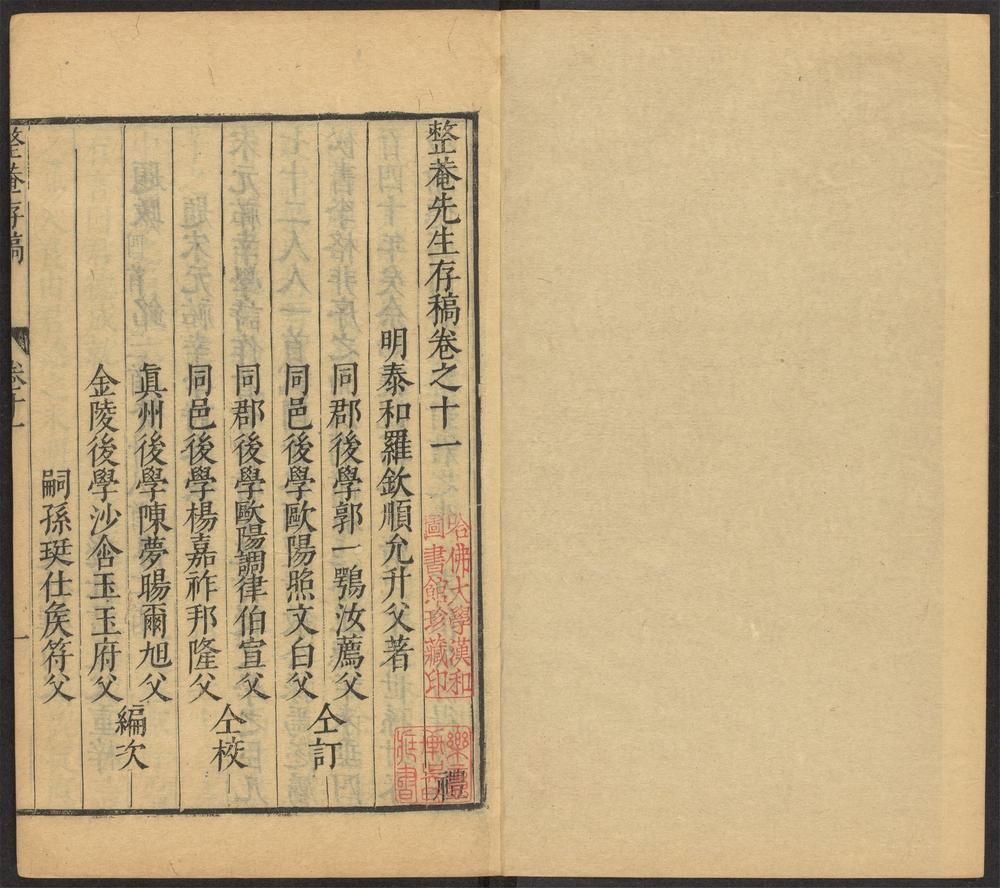 整菴先生存稿卷之十一
明泰和羅欽順允升父著
同郡後學郭一鶚汝薦父
同邑後學歐陽照文白父
仝訂
同郡後學歐陽調律伯宣父
同邑後學楊嘉祚邦隆父
仝校
眞州後學陳夢暘爾旭父
金陵後學沙舍玉玉府父
編次
嗣孫珽仕矦符父
整菴存稿
卷十一
一
禮
哈佛大學漢和
圖書館珍藏印